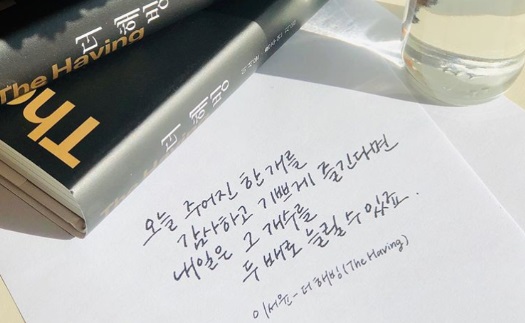 더 해빙
The Having
The
더 해빙
오늘 주어진 한 개를
감사하고 기쁘게 즐긴다면
내일은 그 개수를
두 배로 늘릴 수 있죠.
이서윤 - 더 해빙 (The Having)